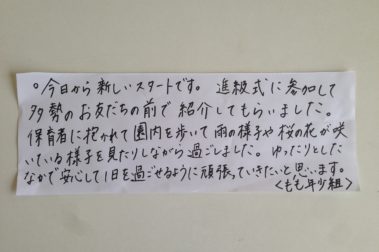 。今日から新しいスタートです。 進級式に参加して
多勢のお友だちの前で紹介してもらいました。
保育者に抱かれて園内を歩いて雨の様子や桜の花が咲
いている様子を見たりしながら過ごしました。ゆったりとした
なかで安心して1日を過ごせるように頑張っていきたいと思います。
〈もも年少組〉